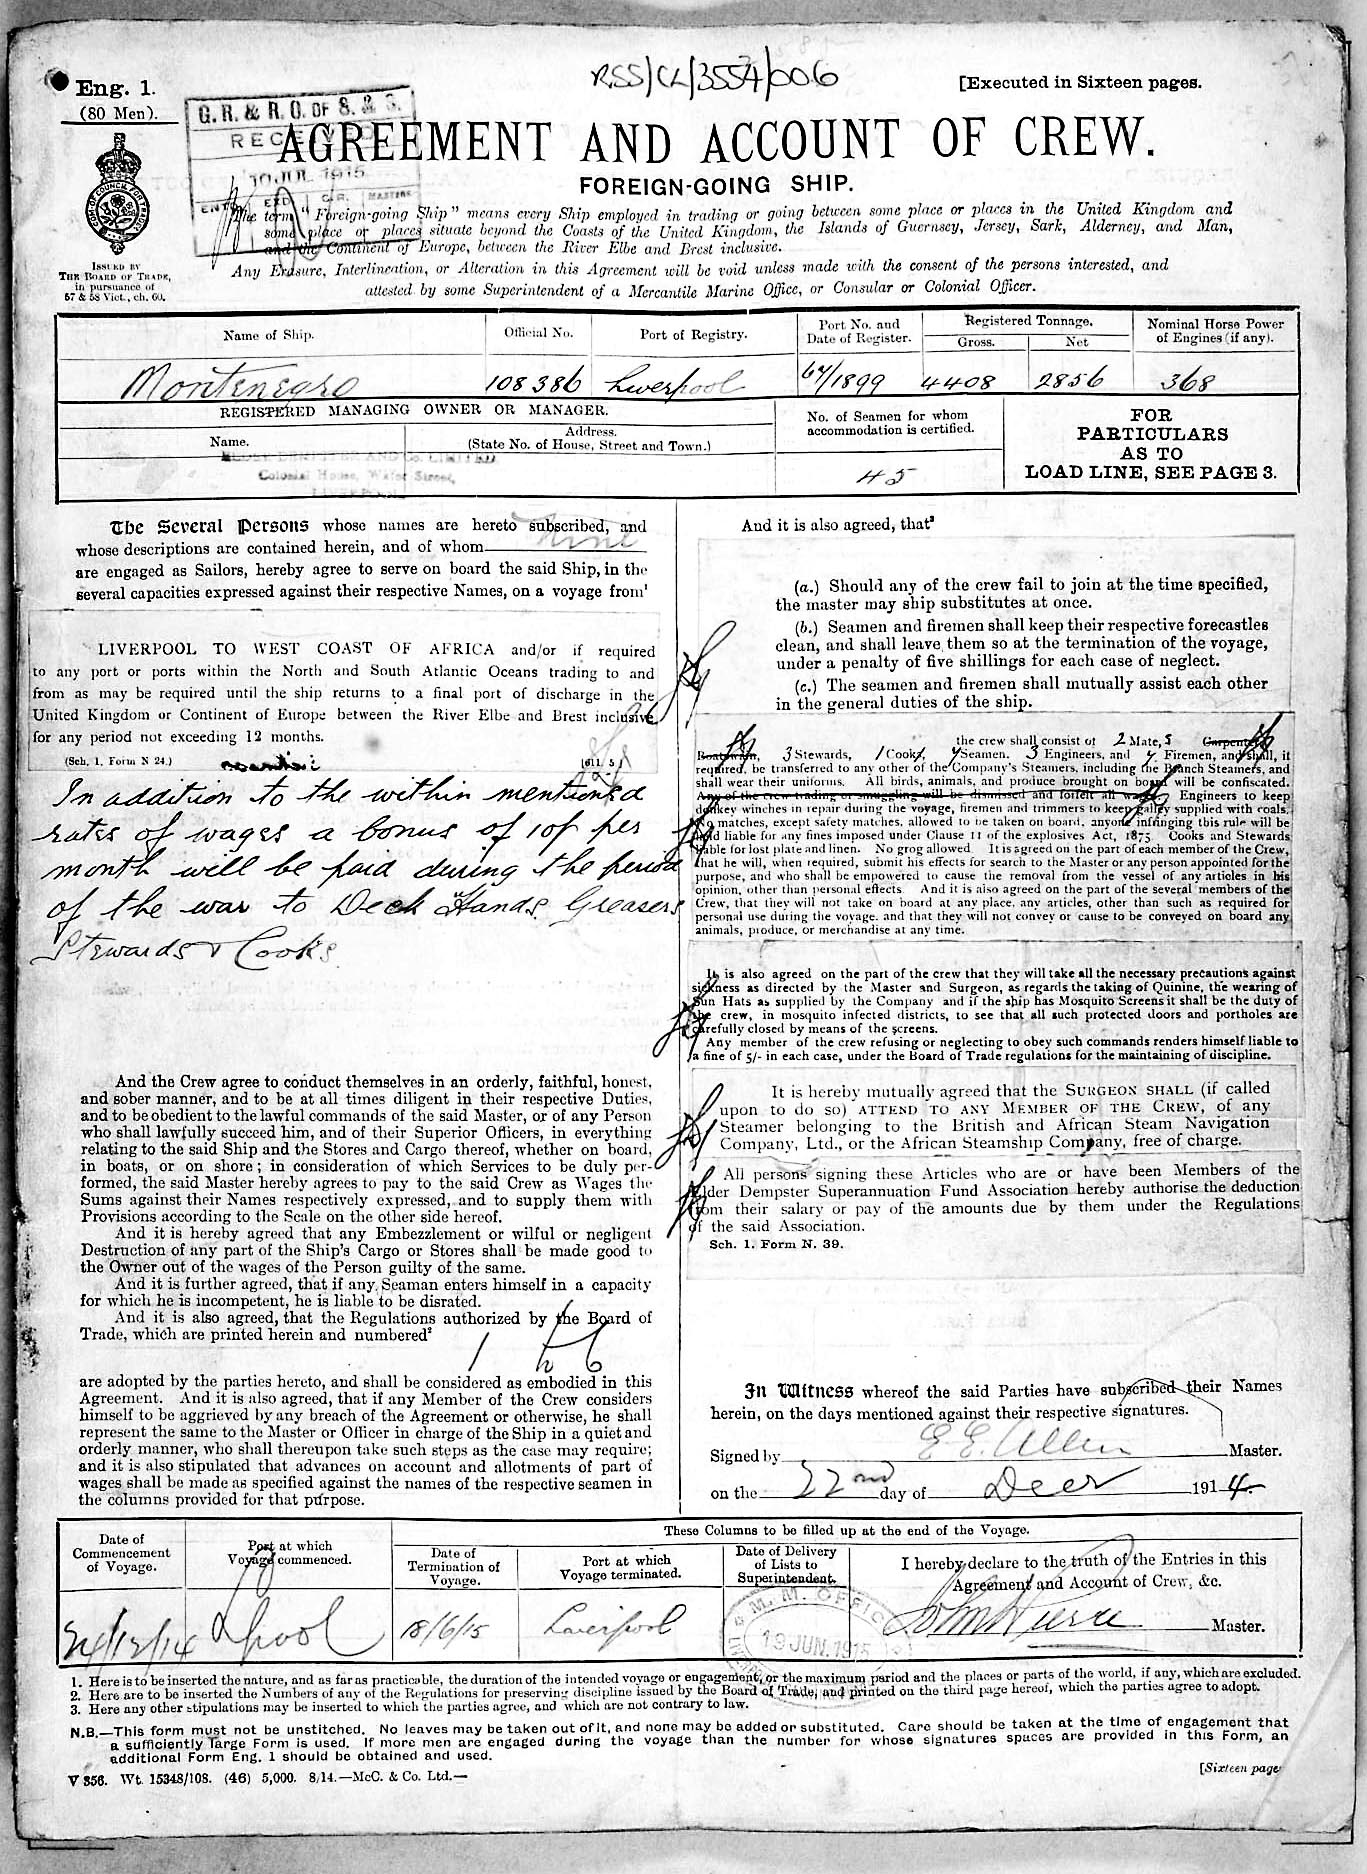 RSS/CL/3554/006
Eng. 1.
(80 Men).
[Executed in Sixteen pages.
G.R. & R.O. OF S. & S.
RECEIVED
10 JUL 1915
AGREEMENT AND ACCOUNT OF CREW.
FOREIGN-GOING SHIP.
The term "Foreign-going Ship" means every Ship employed in trading or going between some place or places in the United Kingdom and
some place or places situate beyond the Coasts of the United Kingdom, the Islands of Guernsey, Jersey, Sark, Alderney, and Man,
and the Continent of Europe, between the River Elbe and Brest inclusive.
Any Erasure, Interlineation, or Alteration in this Agreement will be void unless made with the consent of the persons interested, and
attested by some Superintendent of a Mercantile Marine Office, or Consular or Colonial Officer.
ISSUED BY
THE BOARD OF TRADE,
in pursuance of
57 & 58 Vict., ch. 60.
Name of Ship. Official No. Port of Registry. Port No. and Date of Register. Registered Tonnage. Gross. Net Nominal Horse Power of Engines (if any).
Montenegro 108386 Liverpool 64/1899 4408 2856 368
REGISTERED MANAGING OWNER OR MANAGER.
Name. Address. (State No. of House, Street and Town.)
ELDER DEMPSTER AND Co. LIMITED
Colonial House, Water Street,
LIVERPOOL
No. of Seamen for whom
accommodation is certified.
45
FOR
PARTICULARS
AS TO
LOAD LINE, SEE PAGE 3.
The Several Persons whose names are hereto subscribed, and
whose descriptions are contained herein, and of whom nine
are engaged as Sailors, hereby agree to serve on board the said Ship, in the
several capacities expressed against their respective Names, on a voyage from¹
LIVERPOOL TO WEST COAST OF AFRICA and/or if required
to any port or ports within the North and South Atlantic Oceans trading to and
from as may be required until the ship returns to a final port of discharge in the
United Kingdom or Continent of Europe between the River Elbe and Brest inclusive,
for any period not exceeding 12 months.
(Sch. 1. Form N 24.)
In addition to the within mentioned
rates of wages a bonus of 10/ per
month will be paid during the period
of the war to Deck Hands, Greasers
Stewards & Cooks.
And the Crew agree to conduct themselves in an orderly, faithful, honest,
and sober manner, and to be at all times diligent in their respective Duties,
and to be obedient to the lawful commands of the said Master, or of any Person
who shall lawfully succeed him, and of their Superior Officers, in everything
relating to the said Ship and the Stores and Cargo thereof, whether on board,
in boats, or on shore; in consideration of which Services to be duly per-
formed, the said Master hereby agrees to pay to the said Crew as Wages the
Sums against their Names respectively expressed, and to supply them with
Provisions according to the Scale on the other side hereof.
And it is hereby agreed that any Embezzlement or wilful or negligent
Destruction of any part of the Ship's Cargo or Stores shall be made good to
the Owner out of the wages of the Person guilty of the same.
And it is further agreed, that if any Seaman enters himself in a capacity
for which he is incompetent, he is liable to be disrated.
And it is also agreed, that the Regulations authorized by the Board of
Trade, which are printed herein and numbered²
1 to 6
are adopted by the parties hereto, and shall be considered as embodied in this
Agreement. And it is also agreed, that if any Member of the Crew considers
himself to be aggrieved by any breach of the Agreement or otherwise, he shall
represent the same to the Master or Officer in charge of the Ship in a quiet and
orderly manner, who shall thereupon take such steps as the case may require;
and it is also stipulated that advances on account and allotments of part of
wages shall be made as specified against the names of the respective seamen in
the columns provided for that purpose.
And it is also agreed, that³
(a.) Should any of the crew fail to join at the time specified,
the master may ship substitutes at once.
(b.) Seamen and firemen shall keep their respective forecastles
clean, and shall leave them so at the termination of the voyage,
under a penalty of five shillings for each case of neglect.
(c.) The seamen and firemen shall mutually assist each other
in the general duties of the ship.
the crew shall consist of 2 Mates, Carpenter
Boatswain, 3 Stewards, 1 Cook, 4 Seamen. 3 Engineers, and 4 Firemen, and shall, if
required, be transferred to any other of the Company's Steamers, including the Branch Steamers, and
shall wear their uniforms. All birds, animals, and produce brought on board will be confiscated.
Any of the crew trading or smuggling will be dismissed and forfeit all wages. Engineers to keep
donkey winches in repair during the voyage, firemen and trimmers to keep galley supplied with coals.
No matches, except safety matches, allowed to be taken on board, anyone infringing this rule will be
held liable for any fines imposed under Clause 11 of the explosives Act, 1875. Cooks and Stewards
liable for lost plate and linen. No grog allowed. It is agreed on the part of each member of the Crew,
that he will, when required, submit his effects for search to the Master or any person appointed for the
purpose, and who shall be empowered to cause the removal from the vessel of any articles in his
opinion, other than personal effects. And it is also agreed on the part of the several members of the
Crew, that they will not take on board at any place, any articles, other than such as required for
personal use during the voyage, and that they will not convey or cause to be conveyed on board any
animals, produce, or merchandise at any time.
It is also agreed on the part of the crew that they will take all the necessary precautions against
sickness as directed by the Master and Surgeon, as regards the taking of Quinine, the wearing of
Sun Hats as supplied by the Company and if the ship has Mosquito Screens it shall be the duty of
the crew, in mosquito infected districts, to see that all such protected doors and portholes are
carefully closed by means of the screens.
Any member of the crew refusing or neglecting to obey such commands renders himself liable to
a fine of 5/- in each case, under the Board of Trade regulations for the maintaining of discipline.
It is hereby mutually agreed that the SURGEON SHALL (if called
upon to do so) ATTEND TO ANY MEMBER OF THE CREW, of any
Steamer belonging to the British and African Steam Navigation
Company, Ltd., or the African Steamship Company, free of charge.
All persons signing these Articles who are or have been Members of the
Elder Dempster Superannuation Fund Association hereby authorise the deduction
from their salary or pay of the amounts due by them under the Regulations
of the said Association.
Sch. 1. Form N. 39.
In Witness whereof the said Parties have subscribed their Names
herein, on the days mentioned against their respective signatures.
Signed by E. E. Allen Master.
on the 22nd day of Decr 1914.
Date of Commencement of Voyage. Port at which Voyage commenced. These Columns to be filled up at the end of the Voyage.
Date of Termination of Voyage. Port at which Voyage terminated. Date of Delivery of Lists to Superintendent. I hereby declare to the truth of the Entries in this
Agreement and Account of Crew, &c.
24/12/14 Lpool 18/6/15 Liverpool
M. M. OFFICE
19 JUN. 1915
John Pierce Master.
1. Here is to be inserted the nature, and as far as practicable, the duration of the intended voyage or engagement, or the maximum period and the places or parts of the world, if any, which are excluded.
2. Here are to be inserted the Numbers of any of the Regulations for preserving discipline issued by the Board of Trade, and printed on the third page hereof, which the parties agree to adopt.
3. Here any other stipulations may be inserted to which the parties agree, and which are not contrary to law.
N.B.—This form must not be unstitched. No leaves may be taken out of it, and none may be added or substituted. Care should be taken at the time of engagement that
a sufficiently large Form is used. If more men are engaged during the voyage than the number for whose signatures spaces are provided in this Form, an
additional Form Eng. 1 should be obtained and used.
V 356. Wt. 15348/108. (46) 5,000. 8/14.—McC. & Co. Ltd.—
[Sixteen page